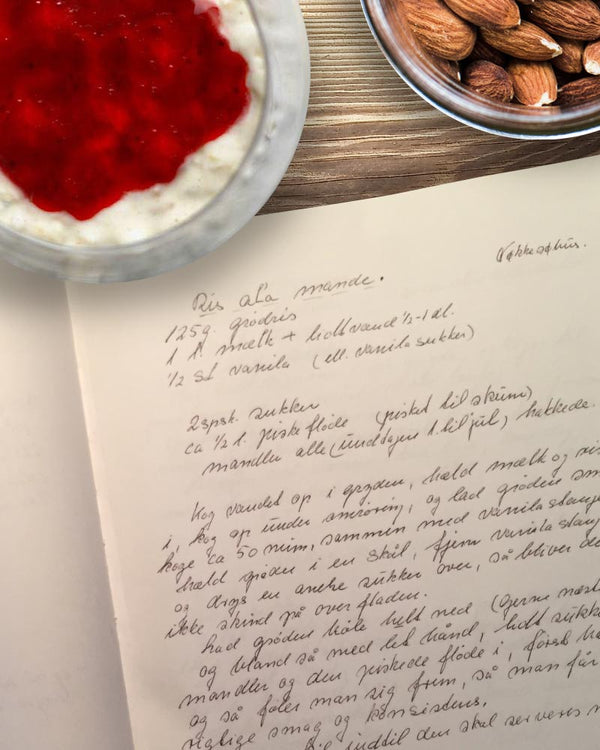 Nøkkeshus.
Ris ala mande.
125g. grødris
1 l. mælk + koldt vand ½-1 dl.
½ st vanila (ell. vanila sukker)
2 spsk. sukker
ca ½ l. piske fløde (pisket til skum)
mandler alle (undtagen 1. til jul) hakkede.
Kog vandet op i gryden, hæld mælk og ris
i, kog op under omrøring, og lad grøden sm
koge ca 50 min, sammen med vanilastang
hæld grøden i en skål, fjern vanilastang
og drys en anelse sukker over, så bliver de
ikke skind på overfladen.
Lad grøden køle helt ned (gerne næst
og bland så med let hånd, lidt sukke
mandler og den piskede fløde i, først ha
og så føler man sig frem, så man får
rigtige smag og konsistens.
indtil den skal serveres